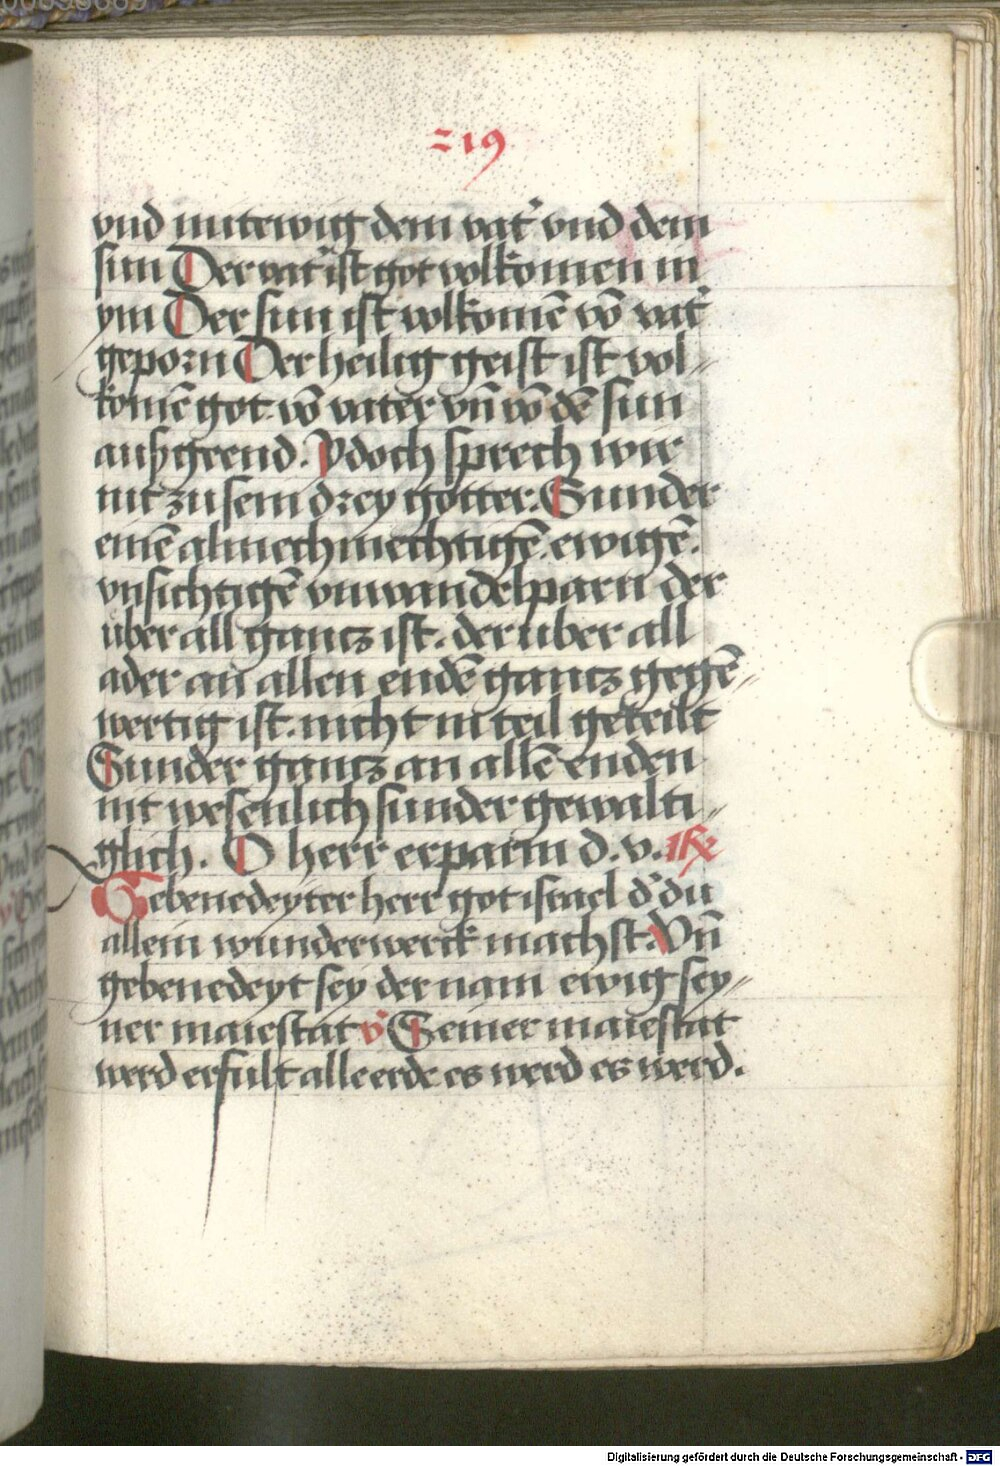 219
vnd mitewig dem vat' vnd dem
sun Der vat' ist got volkomen in
ym Der sun ist volkomē vō vat'
geporn Der heilig geist ist vol-
komē got vō vater vn̄ vō dē sun
auſzgeend. Ydoch sprech wir
nit zu sein drey götter. Sunder
einē almechmechtigē. ewigē.
vnsichtigē vnwandelparn der
über all gantz ist. der über all
ader an allen endē gantz gegē-
wertig ist. nicht in teil geteilt
Sunder gantz an allē enden
nit wesenlich sunder gewalti-
glich. O herr erparm d. v.
Gebenedeyter herr got israel d' du
allein wunderwerck machst. Vn̄
gebenedeyt sey der nam ewig sey-
ner maiestat v' Seiner maiestat
werd erfult alle erde es werd es werd.
Digitalisierung gefördert durch die Deutsche Forschungsgemeinschaft - DFG